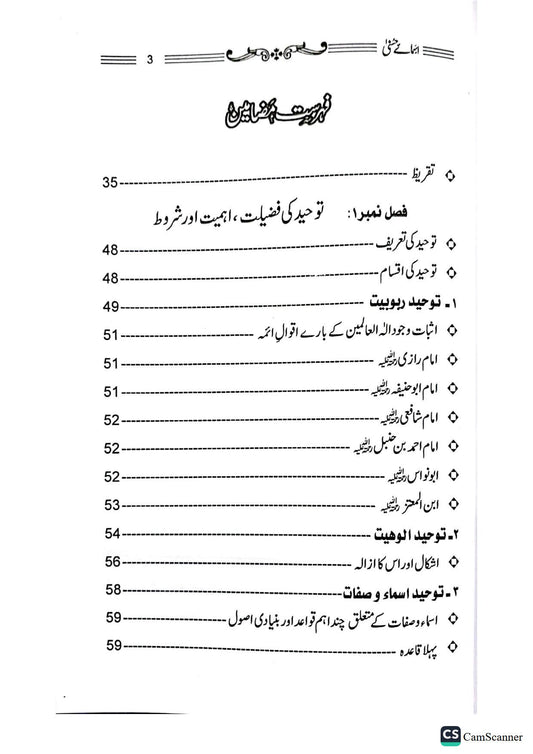 اسمائے حسنیٰ 3
فہرست مضامین
تقریظ 35
فصل نمبر۱: توحید کی فضیلت، اہمیت اور شروط
توحید کی تعریف 48
توحید کی اقسام 48
۱۔ توحید ربوبیت 49
اثبات وجود الٰہ العالمین کے بارے اقوالِ ائمہ 51
امام رازی رحمۃ اللہ علیہ 51
امام ابوحنیفہ رحمۃ اللہ علیہ 51
امام شافعی رحمۃ اللہ علیہ 52
امام احمد بن حنبل رحمۃ اللہ علیہ 52
ابونواس رحمۃ اللہ علیہ 52
ابن المعتز رحمۃ اللہ علیہ 53
۲۔ توحید الوهیت 54
اشکال اور اس کا ازالہ 56
۳۔ توحید اسماء و صفات 58
اسماء و صفات کے متعلق چند اہم قواعد اور بنیادی اصول 59
پہلا قاعدہ 59
CS CamScanner